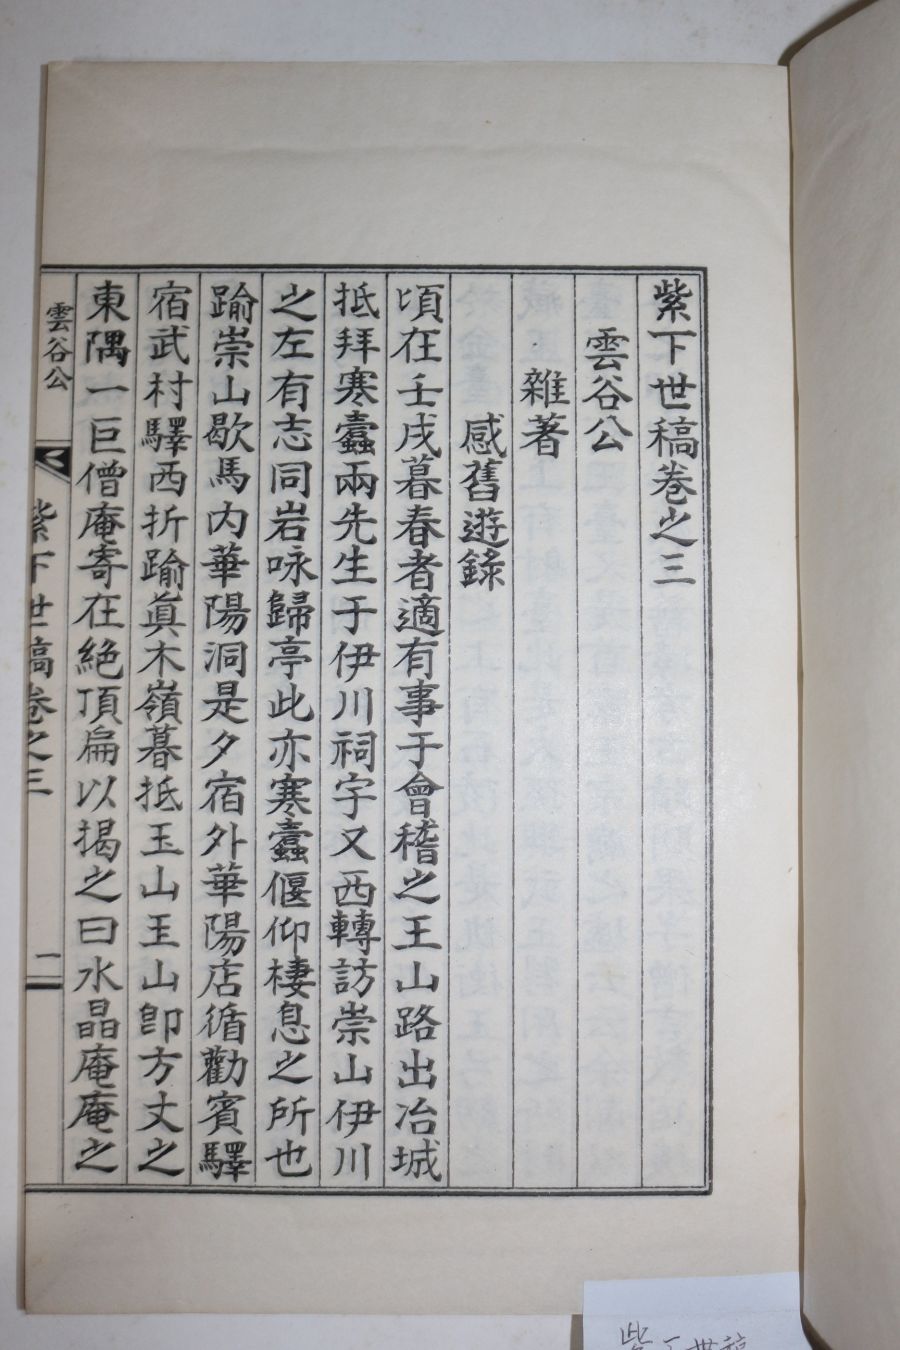 紫下世稿卷之三
雲谷公
雜著
感舊遊錄
頃在壬戌暮春者適有事于會稽之王山路出冶城
抵拜寒蠹兩先生于伊川祠宇又西轉訪崇山伊川
之左有志同岩咏歸亭此亦寒蠹偃仰棲息之所也
踰崇山歇馬內華陽洞是夕宿外華陽店循勸賓驛
宿武村驛西折踰眞木嶺暮抵玉山王山卽方丈之
東隅一巨僧庵寄在絶頂扁以揭之曰水晶庵庵之
雲谷公
紫下世稿卷之三
一
紫下世稿